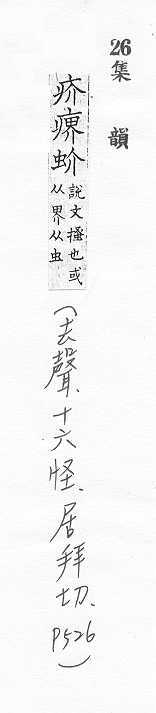 26集 韻
疥㾏蚧說文搔也或
从界从虫
(去聲、十六怪、居拜切、P526)